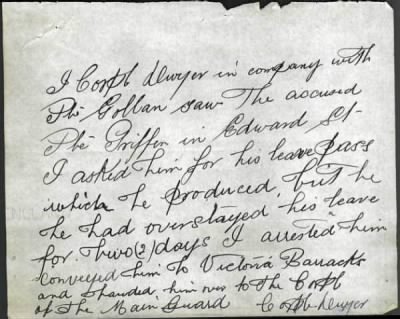 I Corpl Dwyer in company with
Pte Gollan saw The accused
Pte Griffin in Edward St-
I asked him for his leave pass
which he produced, but he
he had overstayed his leave
for two (2) days I arrested him
conveyed him to Victoria Barracks
and handed him over to the Corpl
of the Main Guard
Corpl Dwyer